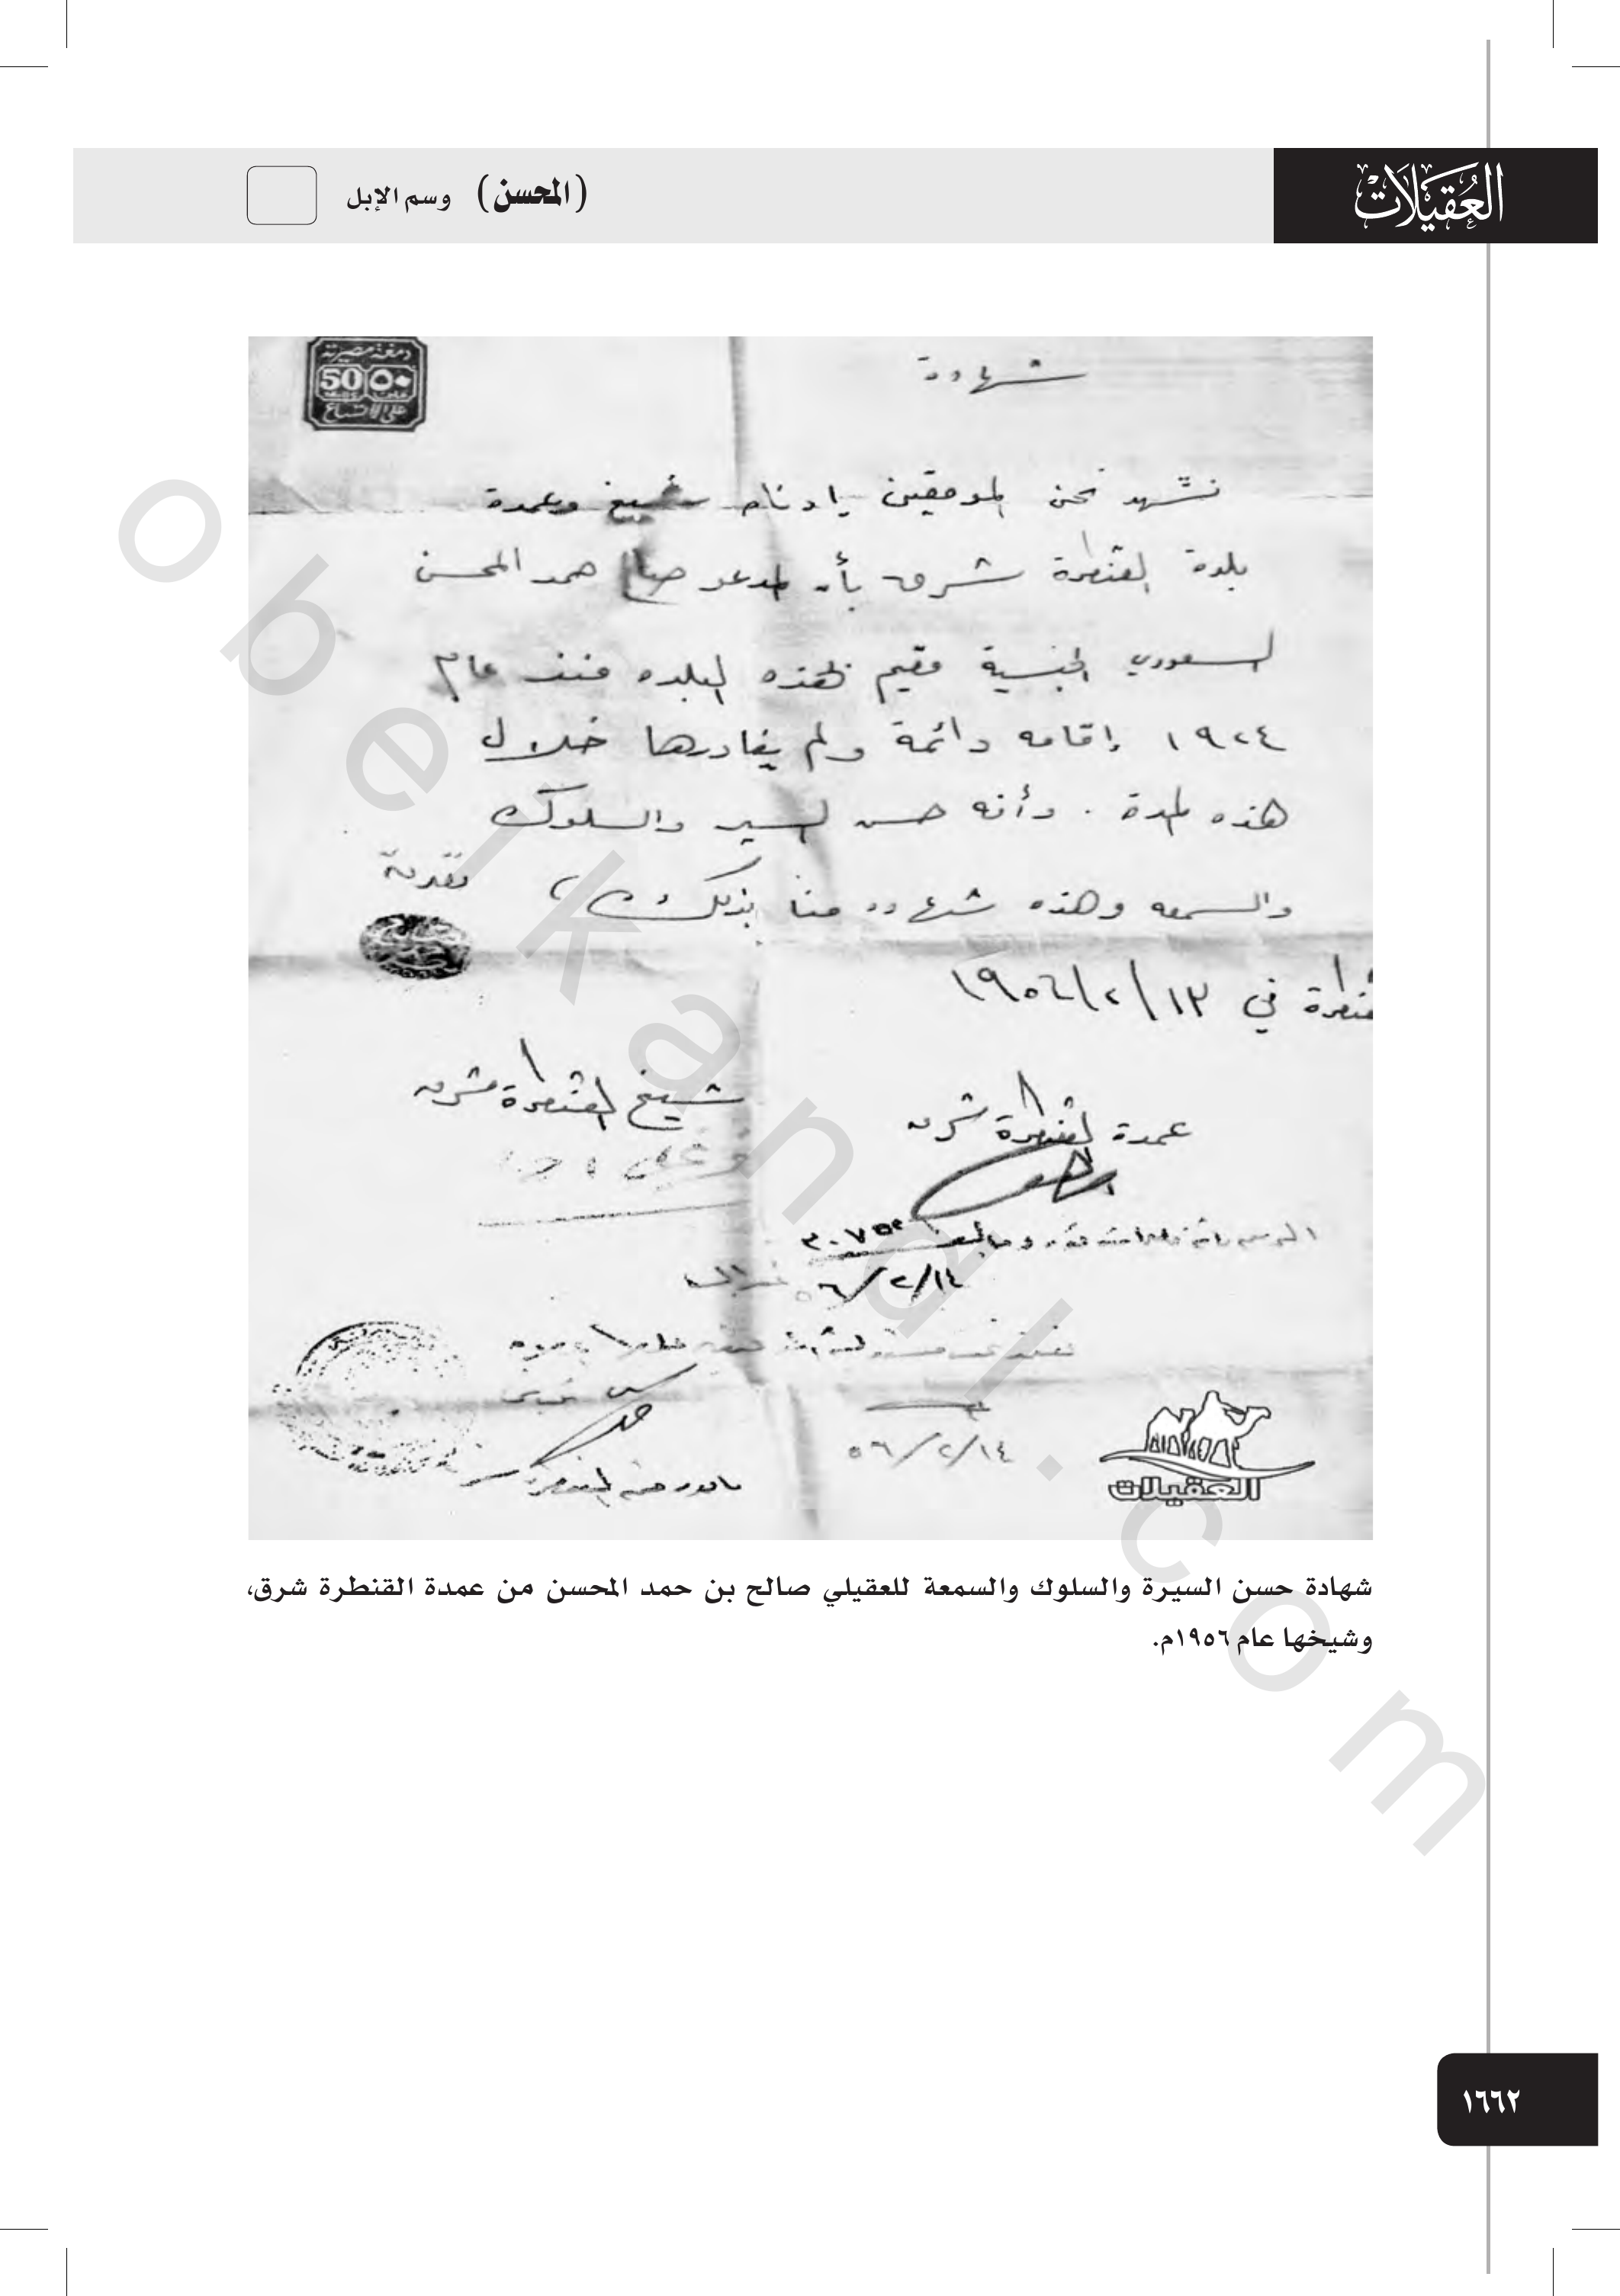 العُقَيْلَاتْ
(المحسن) وسم الإبل
دمغة مصرية
50 ٥٠
على الاتساع
شهادة
نشهد نحن الموقعين بإدناه شيخ وعمدة
بلدة القنطرة شرق بأن المدعو صالح حمد المحسن
السعودي الجنسية مقيم بهذه البلده منذ عام
١٩٢٤ إقامه دائمة ولم يغادرها خلال
هذه المدة . وأنه حسن السير والسلوك
والسمعه وهذه شهاده منا بذلك
القنطرة في ١٣/٢/١٩٥٦
عمدة القنطرة شرق
شيخ القنطرة شرق
٥٦/٢/١٤
٥٦/٢/١٤
العقيلات
شهادة حسن السيرة والسلوك والسمعة للعقيلي صالح بن حمد المحسن من عمدة القنطرة شرق،
وشيخها عام ١٩٥٦م.
١٦٦٢
obeikandl.com